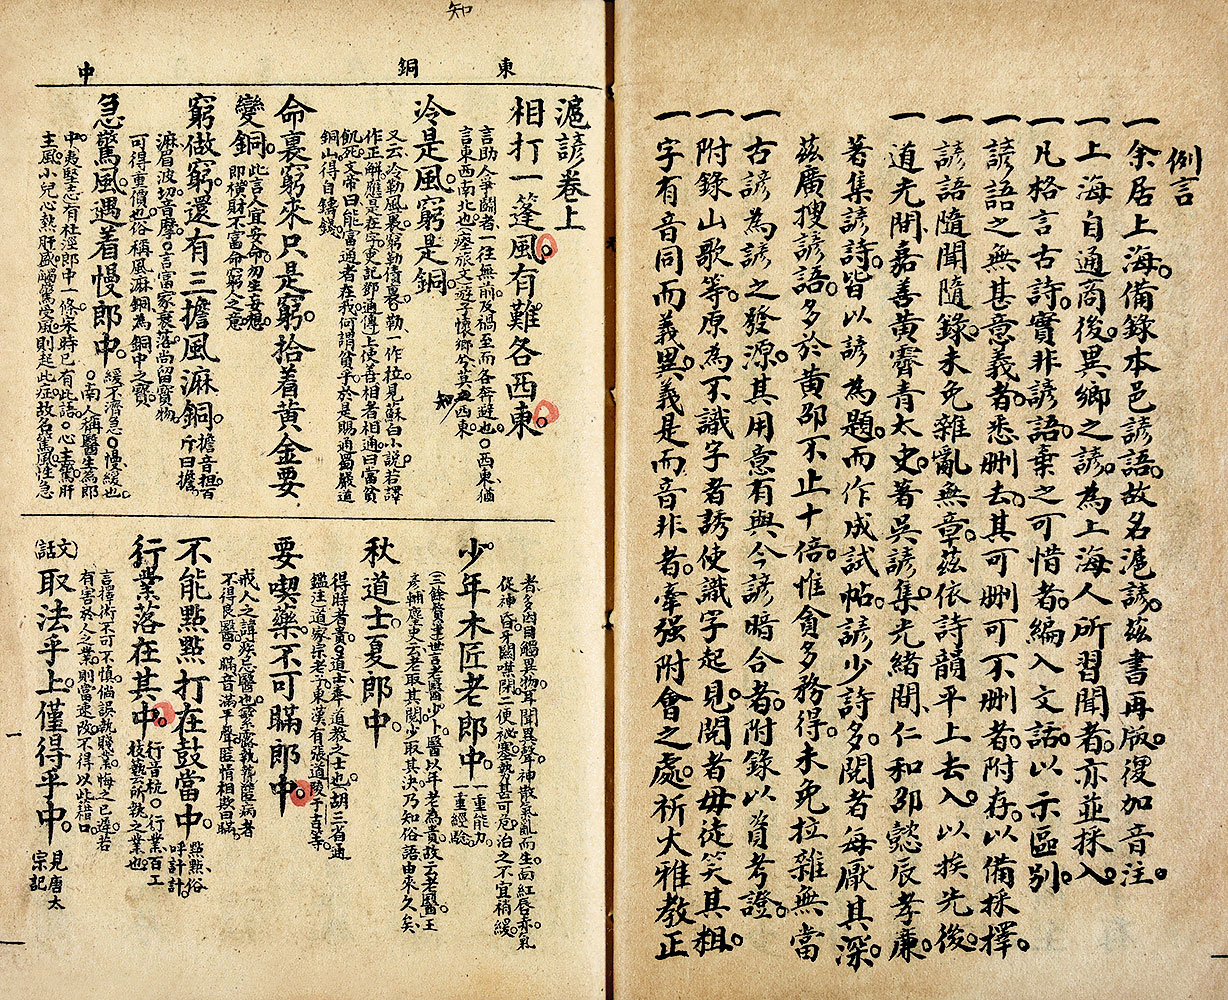 例言
一余居上海。備錄本邑諺語。故名滬諺。茲書再版。復加音注。
一上海自通商後。異鄉之諺。為上海人所習聞者。亦並採入。
一凡格言古詩。實非諺語。棄之可惜者。編入文話。以示區別。
一諺語之無甚意義者。悉刪去。其可刪可不刪者。附存。以備採擇。
一諺語隨聞隨錄。未免雜亂無章。茲依詩韻平上去入。以挨先後。
一道光間。嘉善黃霽青太史。著吳諺集。光緒間。仁和邵懿辰孝廉。
著集諺詩。皆以諺為題。而作成試帖。諺少詩多。閱者每厭其深。
茲廣搜諺語。多於黃邵不止十倍。惟貪多務得。未免拉雜無當
一古諺為諺之發源。其用意有與今諺暗合者。附錄以資考證。
一附錄山歌等。原為不識字者誘使識字起見。閱者毋徒笑其粗。
一字有音同而義異。義是而音非者。牽强附會之處。祈大雅教正
知
東
銅
中
滬諺卷上
相打一篷風。有難各西東。
言助人爭鬭者。一往無前。及禍至而各奔避也。○西東。猶
言東西南北也。
知
冷是風。窮是銅
又云。冷勒風裏。窮勒債裏。○勒一作拉。見蘇白小說。若譯
作正解。應是在字。史記鄧通傳。上使善相者相通。曰當貧
餓死。文帝曰。能富通者在我。何謂貧乎。於是賜通蜀嚴道
銅山。得自鑄錢。
命裏窮來只是窮。拾着黃金要
變銅。此言人宜安命。勿生妄想。
即橫財不富命窮人之意
窮做窮。還有三擔風麻銅。擔音担。百斤曰擔。
麻眉波切。音摩。○言富家衰落。尚留寶物。
可得重價也。俗稱風麻銅。為銅中之寶。
急驚風。遇着慢郎中。緩不濟急。○慢。緩也。
○南人稱醫生為郎
中。夷堅志有杜涇郎中一條。宋時已有此語。○心主驚。肝
主風。小兒心熱肝盛。觸驚受風。則起此症。故名驚風。性急
者。多因目觸異物。耳聞異聲。神散氣亂而生。面紅唇赤。氣
促神昏。牙關噤閉。二便祕塞。勢甚可危。治之不宜稍緩。
少年木匠老郎中。一重能力。一重經驗。
(三餘贅筆)世言老醫少卜。醫以年老為貴。故云老醫。王
彥輔麈史云。老取其閱。少取其決。乃知俗語由來久矣、
秋道士。夏郎中。
得時者貴。○道士。奉道教之士也。(胡三省通
鑑注)道家宗老子。東漢有張道陵于吉等。
要喫藥。不可瞞郎中。
戒人之諱疾忌醫也。繁露執贄篇。匿病者
不得良醫。○瞞音滿平聲。匿情相欺曰瞞。
不能點點打在鼓當中。點點。俗呼計計。
行業落在其中。行音杭。○行業。百工
技藝所執之業也。
言擇術不可不慎。倘誤執賤業。悔之已遲。若
有害於人之業。則當速改。不得以此藉口。
(文話)取法乎上。僅得乎中。見唐太宗記